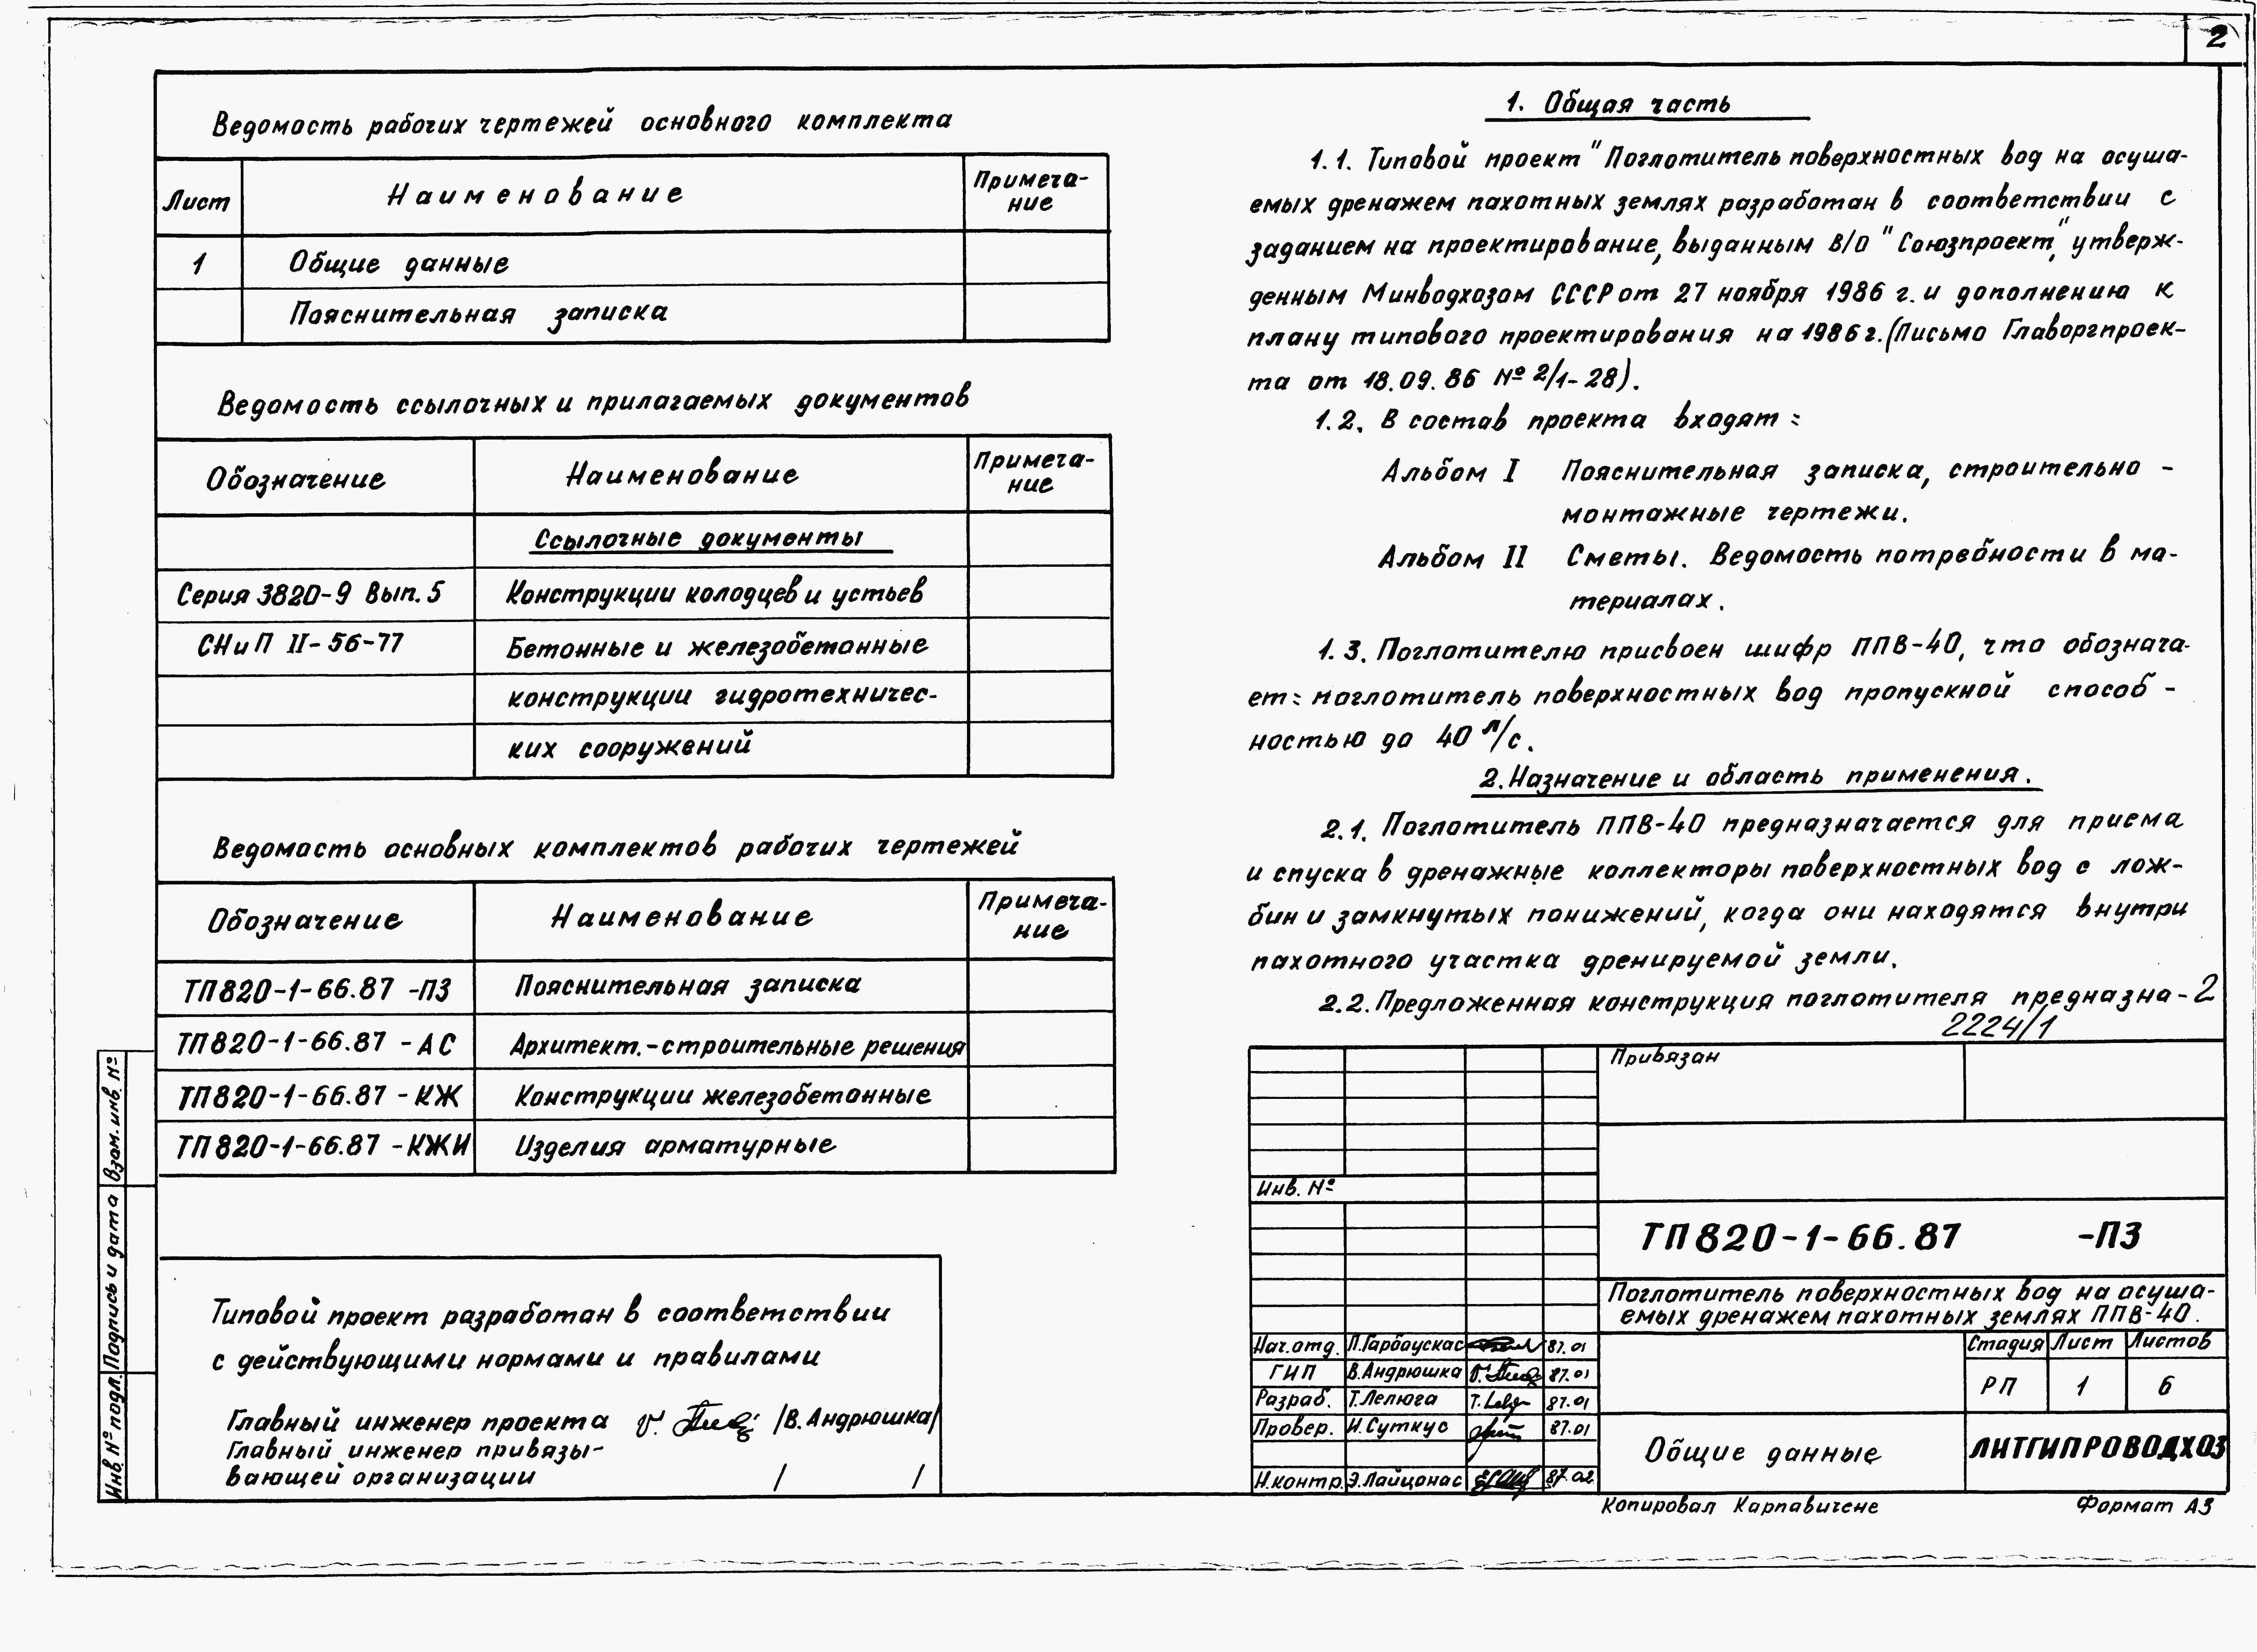 2
Ведомость рабочих чертежей основного комплекта
Лист
Наименование
Примеча-
ние
1
Общие данные
Пояснительная записка
Ведомость ссылочных и прилагаемых документов
Обозначение
Наименование
Примеча-
ние
Ссылочные документы
Серия 3820-9 Вып. 5
Конструкции колодцев и устьев
СНиП II-56-77
Бетонные и железобетонные
конструкции гидротехничес-
ких сооружений
Ведомость основных комплектов рабочих чертежей
Обозначение
Наименование
Примеча-
ние
ТП820-1-66.87 -ПЗ
Пояснительная записка
ТП820-1-66.87 -АС
Архитект.-строительные решения
ТП820-1-66.87 -КЖ
Конструкции железобетонные
ТП820-1-66.87 -КЖИ
Изделия арматурные
Типовой проект разработан в соответствии
с действующими нормами и правилами
Главный инженер проекта /В. Андрюшка/
Главный инженер привязы-
вающей организации / /
Взам. инв. №
Подпись и дата
Инв. № подл.
1. Общая часть
1.1. Типовой проект "Поглотитель поверхностных вод на осуша-
емых дренажем пахотных землях разработан в соответствии с
заданием на проектирование, выданным В/О "Союзпроект", утверж-
денным Минводхозом СССР от 27 ноября 1986 г. и дополнению к
плану типового проектирования на 1986г. (Письмо Главоргпроек-
та от 18.09.86 № 2/1-28).
1.2. В состав проекта входят:
Альбом I Пояснительная записка, строительно -
монтажные чертежи.
Альбом II Сметы. Ведомость потребности в ма-
териалах.
1.3. Поглотителю присвоен шифр ППВ-40, что обознача-
ет: поглотитель поверхностных вод пропускной способ -
ностью до 40 л/с.
2. Назначение и область применения.
2.1. Поглотитель ППВ-40 предназначается для приема
и спуска в дренажные коллекторы поверхностных вод с лож-
бин и замкнутых понижений, когда они находятся внутри
пахотного участка дренируемой земли.
2.2. Предложенная конструкция поглотителя предназна- 2
2224/1
Привязан
Инв. №
ТП820-1-66.87 -ПЗ
Поглотитель поверхностных вод на осуша-
емых дренажем пахотных землях ППВ-40.
Нач.отд. П.Гарбаускас 87.01
ГИП В.Андрюшка 87.01
Разраб. Т.Лелюга 87.01
Провер. И.Суткус 87.01
Н.контр. Э.Лайцонас 87.02
Стадия Лист Листов
РП 1 6
Общие данные
ЛИТГИПРОВОДХОЗ
Копировал Карпавичене
Формат А3